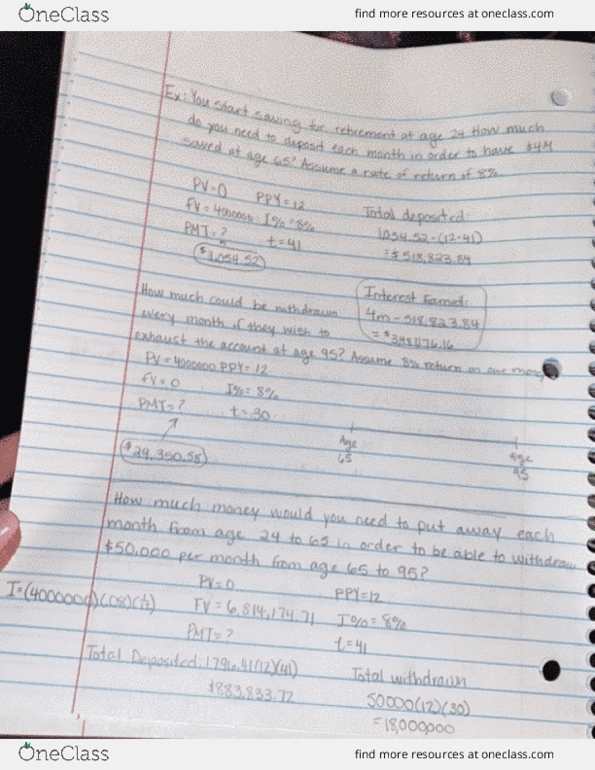 OneClass
find more resources at oneclass.com
Ex: You start saving for retirement at age 24. How much
do you need to deposit each month in order to have $4M
saved at age 65? Assume a rate of return of 8%.
PV=0 PPY=12
FV=4000000 I%=8%
PMT=? t=41
$1,054.52
Total deposited:
1,054.52·(12·41)
=$518,823.84
Interest Earned:
4m-518,823.84
How much could be withdrawn
every month if they wish to
exhaust the account at age 95? Assume 8% return on
PV=4000000 PPY=12
FV=0 I%=8%
PMT=? t=30
$29,350.58
Age
65
Age
95
How much money would you need to put away each
month from age 24 to 65 in order to be able to withdraw
$50,000 per month from age 65 to 95?
PV=0 PPY=12
FV=6,814,174.71 I%=8%
PMT=? t=41
Total Deposited: 1796.41(12)(41)
$883,833.72
Total withdrawn
50000(12)(30)
=18,000,000
OneClass
find more resources at oneclass.com